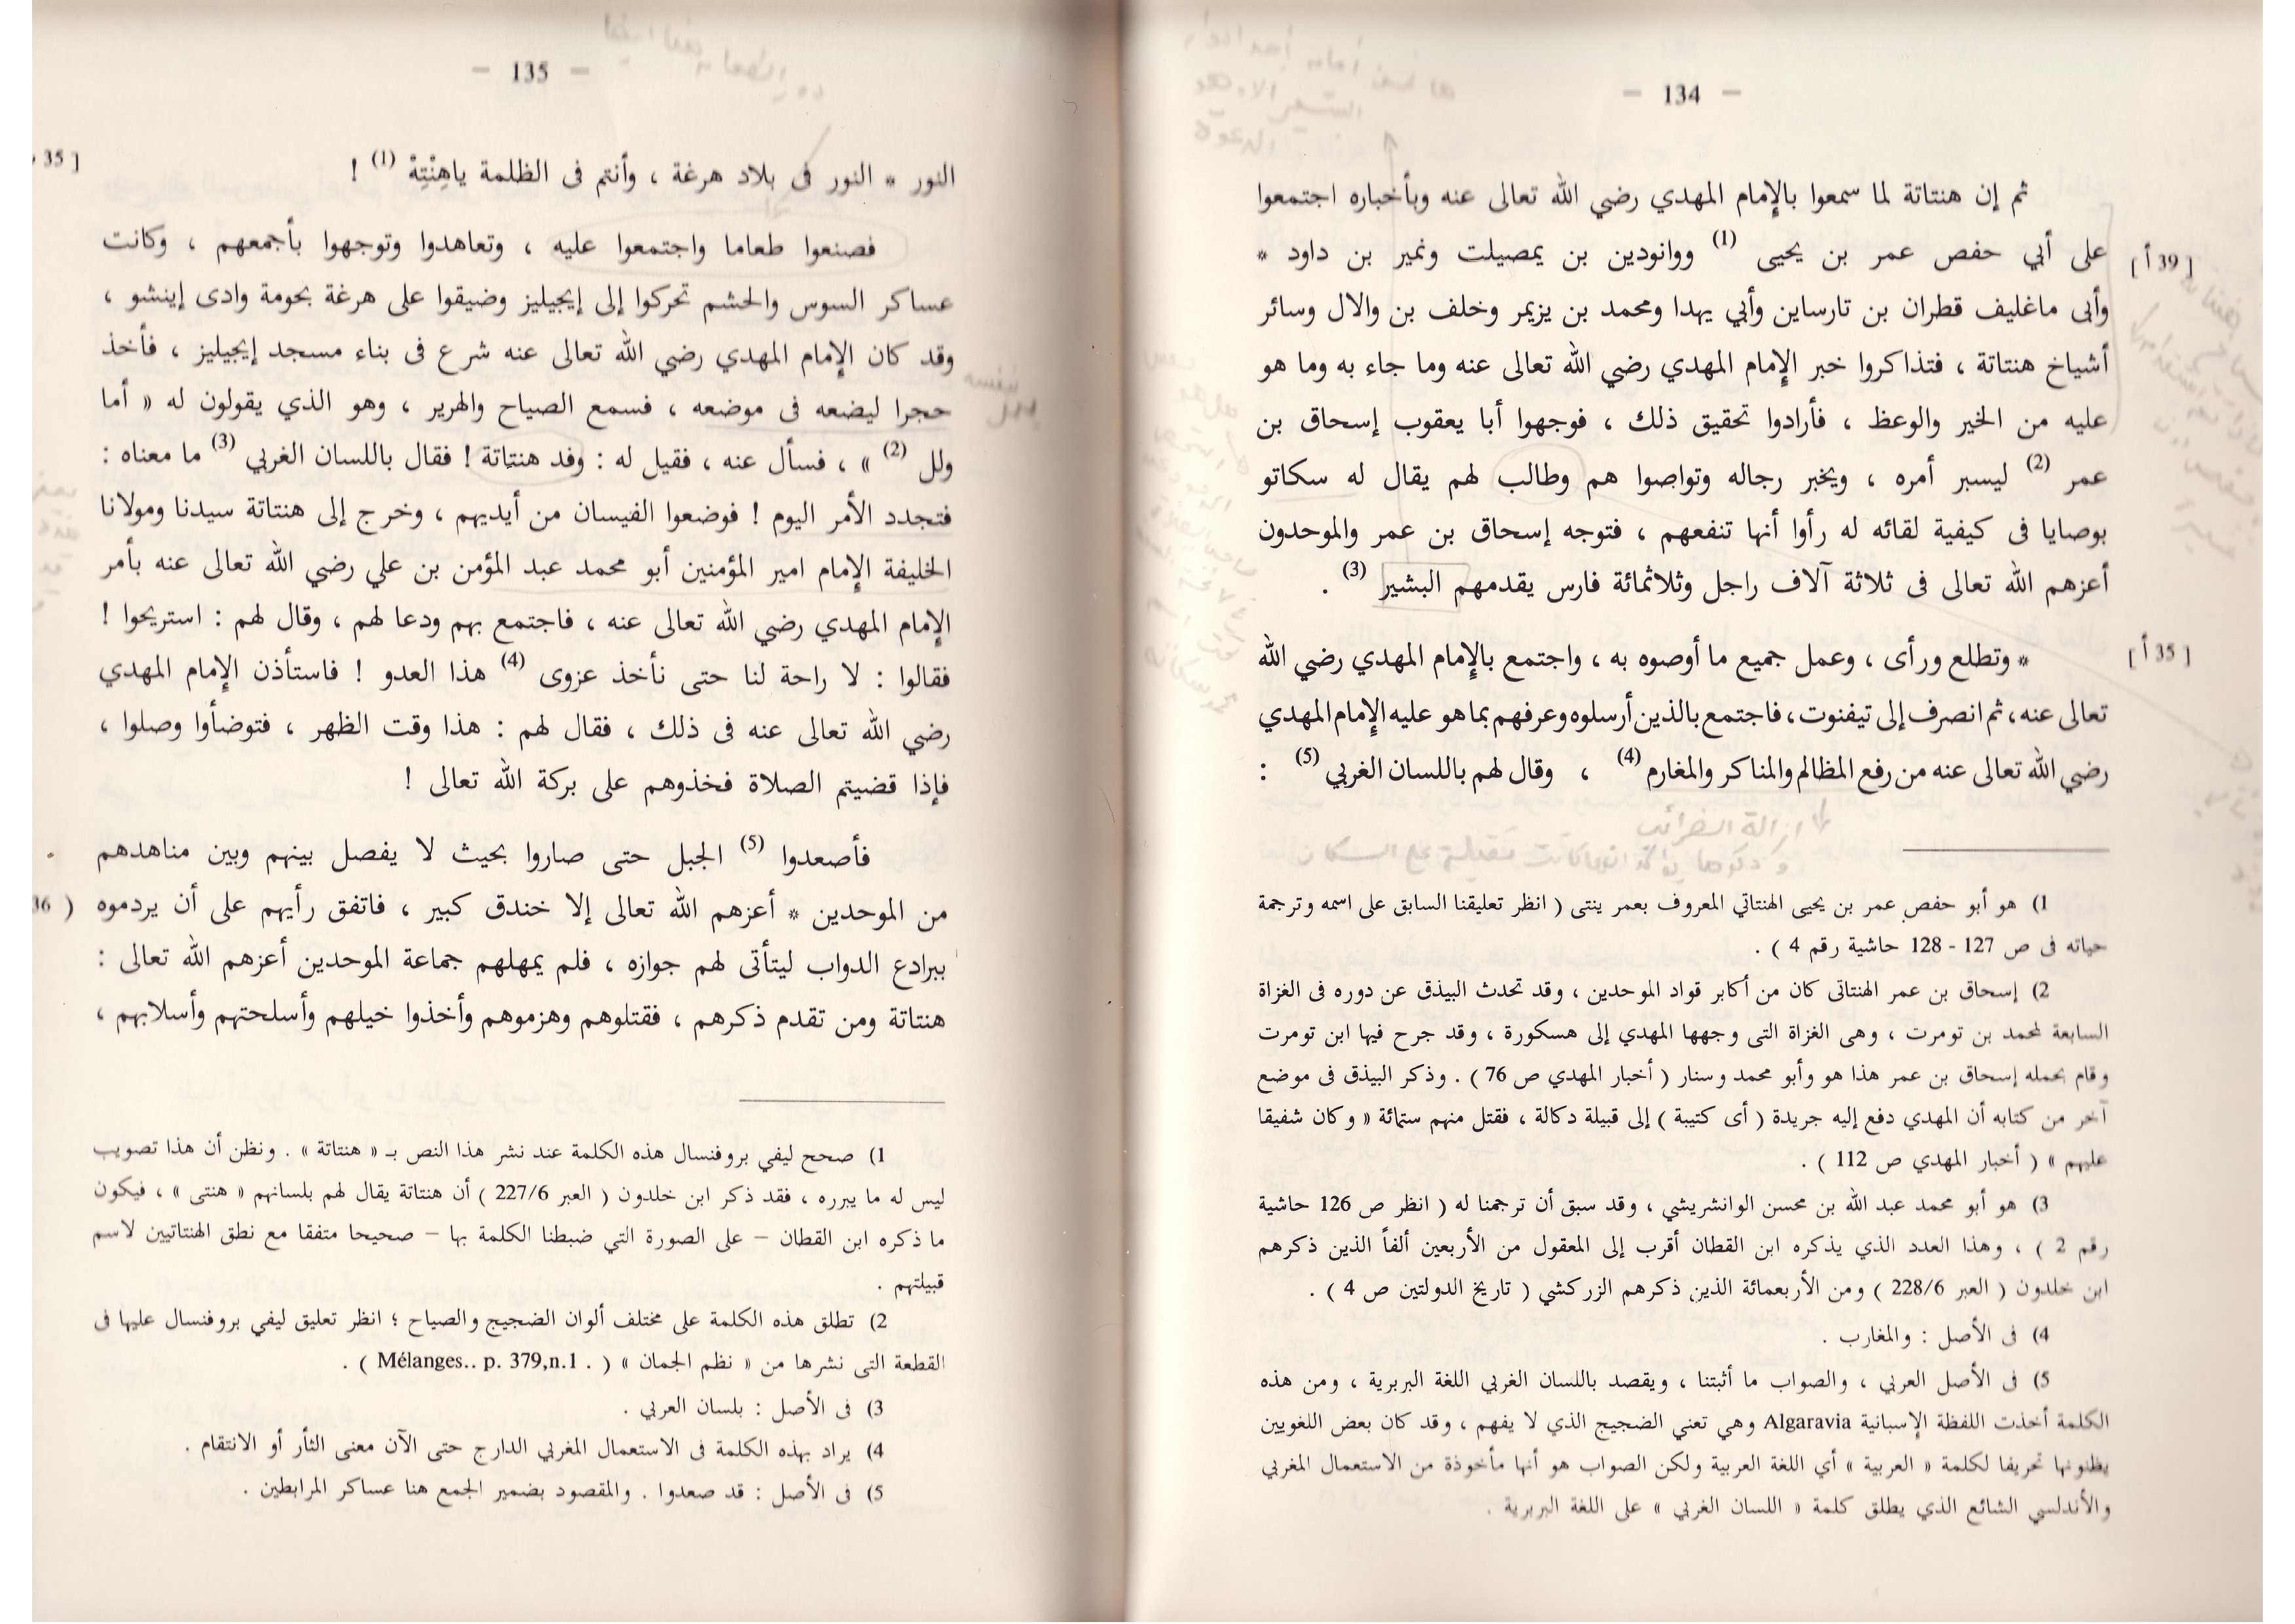 — 134 —
ثم إن هنتاتة لما سمعوا بالإمام المهدي رضي الله تعالى عنه وبأخباره اجتمعوا
[ 39 أ ] على أبي حفص عمر بن يحيى (1) ووانودين بن يمصيلت ونمير بن داود *
وأبى ماغليف قطران بن تارساين وأبي يهدا ومحمد بن يزيمر وخلف بن والال وسائر
أشياخ هنتاتة ، فتذاكروا خبر الإمام المهدي رضي الله تعالى عنه وما جاء به وما هو
عليه من الخير والوعظ ، فأرادوا تحقيق ذلك ، فوجهوا أبا يعقوب إسحاق بن
عمر (2) ليسبر أمره ، ويخبر رجاله وتواصوا هم وطالب لهم يقال له سكاتو
بوصايا فى كيفية لقائه له رأوا أنها تنفعهم ، فتوجه إسحاق بن عمر والموحدون
أعزهم الله تعالى فى ثلاثة آلاف راجل وثلاثمائة فارس يقدمهم البشير (3) .
[ 35 أ ] * وتطلع ورأى ، وعمل جميع ما أوصوه به ، واجتمع بالإمام المهدي رضي الله
تعالى عنه، ثم انصرف إلى تيفنوت، فاجتمع بالذين أرسلوه وعرفهم بما هو عليه الإمام المهدي
رضي الله تعالى عنه من رفع المظالم والمناكر والمغارم (4) ، وقال لهم باللسان الغربي (5) :
ازالة الضرائب
1) هو أبو حفص عمر بن يحيى الهنتاتي المعروف بعمر ينتى ( انظر تعليقنا السابق على اسمه وترجمة
حياته فى ص 127 - 128 حاشية رقم 4 ) .
2) إسحاق بن عمر الهنتاتى كان من أكابر قواد الموحدين ، وقد تحدث البيذق عن دوره فى الغزاة
السابعة لمحمد بن تومرت ، وهى الغزاة التى وجهها المهدي إلى هسكورة ، وقد جرح فيها ابن تومرت
وقام بحمله إسحاق بن عمر هذا هو وأبو محمد وسنار ( أخبار المهدي ص 76 ) . وذكر البيذق فى موضع
آخر من كتابه أن المهدي دفع إليه جريدة ( أى كتيبة ) إلى قبيلة دكالة ، فقتل منهم ستمائة « وكان شفيقا
عليهم » ( أخبار المهدي ص 112 ) .
3) هو أبو محمد عبد الله بن محسن الوانشريشي ، وقد سبق أن ترجمنا له ( انظر ص 126 حاشية
رقم 2 ) ، وهذا العدد الذي يذكره ابن القطان أقرب إلى المعقول من الأربعين ألفاً الذين ذكرهم
ابن خلدون ( العبر 228/6 ) ومن الأربعمائة الذين ذكرهم الزركشي ( تاريخ الدولتين ص 4 ) .
4) فى الأصل : والمغارب .
5) فى الأصل العربي ، والصواب ما أثبتنا ، ويقصد باللسان الغربي اللغة البربرية ، ومن هذه
الكلمة أخذت اللفظة الإسبانية Algaravia وهي تعني الضجيج الذي لا يفهم ، وقد كان بعض اللغويين
يظنونها تحريفا لكلمة « العربية » أي اللغة العربية ولكن الصواب هو أنها مأخوذة من الاستعمال المغربي
والأندلسي الشائع الذي يطلق كلمة « اللسان الغربي » على اللغة البربرية .
— 135 —
النور * النور فى بلاد هرغة ، وأنتم فى الظلمة ياهِنْتِةْ (1) ! 35 ]
فصنعوا طعاما واجتمعوا عليه ، وتعاهدوا وتوجهوا بأجمعهم ، وكانت
عساكر السوس والحشم تحركوا إلى إيجيليز وضيقوا على هرغة بحومة وادى إينشو ،
وقد كان الإمام المهدي رضي الله تعالى عنه شرع فى بناء مسجد إيجيليز ، فأخذ
حجرا ليضعه فى موضعه ، فسمع الصياح والهرير ، وهو الذي يقولون له « أما
ولل (2) » ، فسأل عنه ، فقيل له : وفد هنتاتة ! فقال باللسان الغربي (3) ما معناه :
فتجدد الأمر اليوم ! فوضعوا الفيسان من أيديهم ، وخرج إلى هنتاتة سيدنا ومولانا
الخليفة الإمام امير المؤمنين أبو محمد عبد المؤمن بن علي رضي الله تعالى عنه بأمر
الإمام المهدي رضي الله تعالى عنه ، فاجتمع بهم ودعا لهم ، وقال لهم : استريحوا !
فقالوا : لا راحة لنا حتى نأخذ عزوى (4) هذا العدو ! فاستأذن الإمام المهدي
رضي الله تعالى عنه فى ذلك ، فقال لهم : هذا وقت الظهر ، فتوضأوا وصلوا ،
فإذا قضيتم الصلاة فخذوهم على بركة الله تعالى !
فأصعدوا (5) الجبل حتى صاروا بحيث لا يفصل بينهم وبين مناهدهم
من الموحدين * أعزهم الله تعالى إلا خندق كبير ، فاتفق رأيهم على أن يردموه ( 36
ببرادع الدواب ليتأتى لهم جوازه ، فلم يمهلهم جماعة الموحدين أعزهم الله تعالى :
هنتاتة ومن تقدم ذكرهم ، فقتلوهم وهزموهم وأخذوا خيلهم وأسلحتهم وأسلابهم ،
1) صحح ليفي بروفنسال هذه الكلمة عند نشر هذا النص بـ « هنتاتة » . ونظن أن هذا تصويب
ليس له ما يبرره ، فقد ذكر ابن خلدون ( العبر 227/6 ) أن هنتاتة يقال لهم بلسانهم « هنتى » ، فيكون
ما ذكره ابن القطان – على الصورة التي ضبطنا الكلمة بها – صحيحا متفقا مع نطق الهنتاتيين لاسم
قبيلتهم .
2) تطلق هذه الكلمة على مختلف ألوان الضجيج والصياح ؛ انظر تعليق ليفي بروفنسال عليها فى
القطعة التى نشرها من « نظم الجمان » ( Mélanges.. p. 379,n.1 . ) .
3) فى الأصل : بلسان العربي .
4) يراد بهذه الكلمة فى الاستعمال المغربي الدارج حتى الآن معنى الثأر أو الانتقام .
5) فى الأصل : قد صعدوا . والمقصود بضمير الجمع هنا عساكر المرابطين .